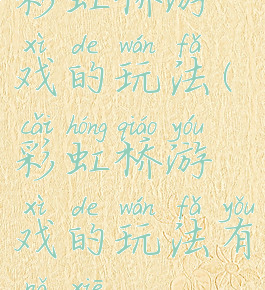 彩虹桥游
xì de wán fǎ
戏的玩法(
cǎi hóng qiáo yóu
彩虹桥游
xì de wán fǎ yǒu
戏的玩法有
nǎ xiē